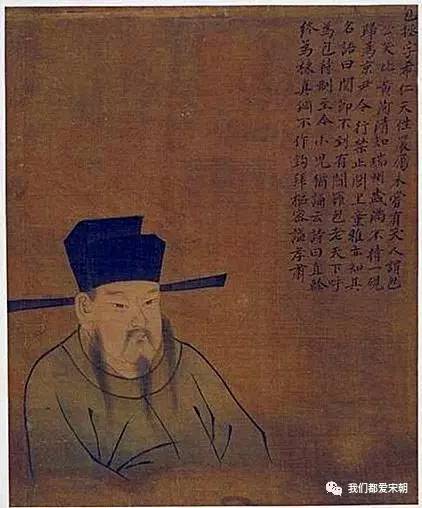 包拯字希仁天性嚴厲未嘗有笑人謂包
公笑比黃河清知瑞州歲滿不持一硯
歸為京尹令行禁止閭里童稚亦知其
名語曰關節不到有閻羅包老天下呼
為包待制至今小兒猶誦云詩曰直幹
終為棟真鋼不作鈎拜樞密謚孝肅
我们都爱宋朝